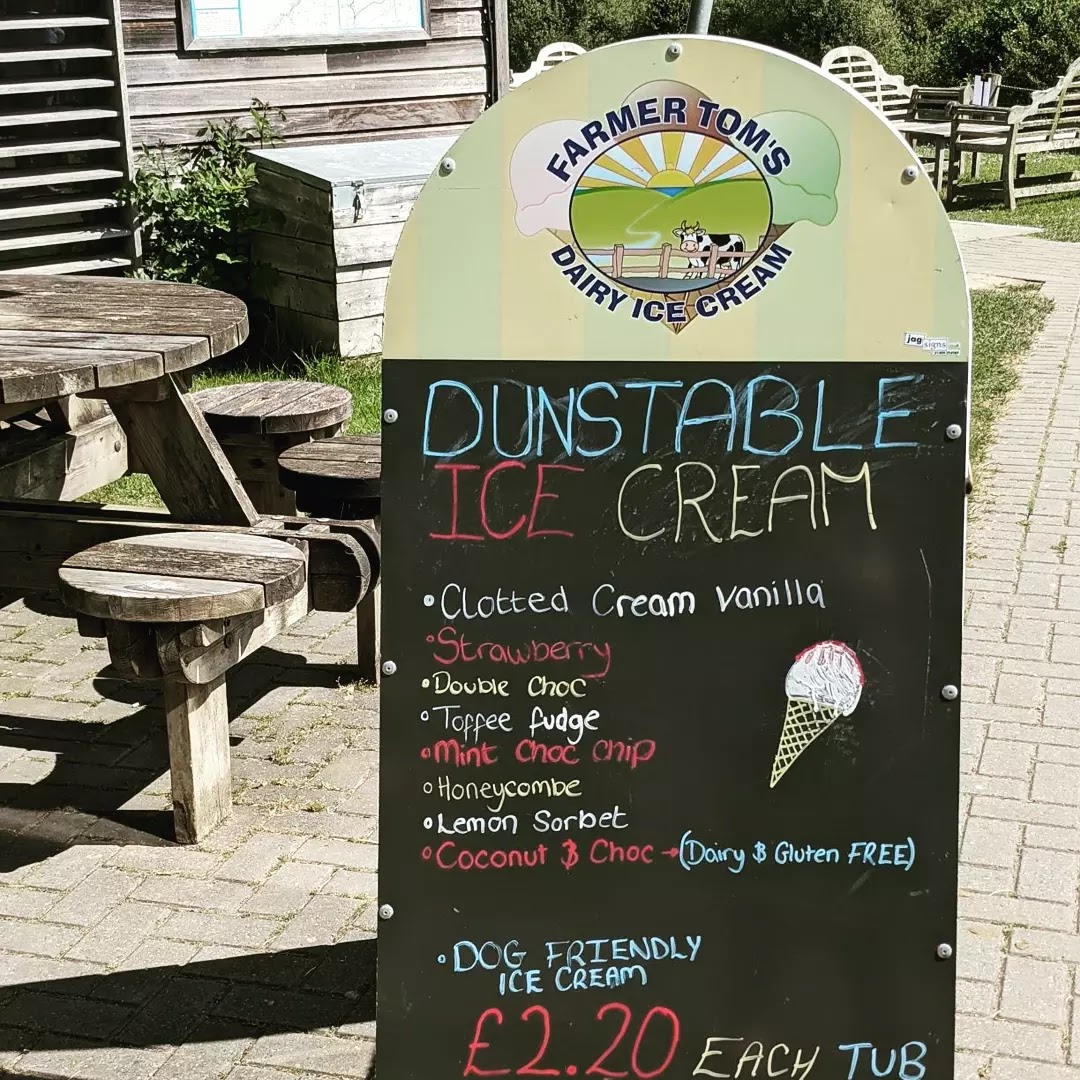 FARMER TOM'S
DAIRY ICE CREAM
jag
signs
DUNSTABLE
ICE CREAM
•Clotted Cream Vanilla
•Strawberry
•Double Choc
•Toffee fudge
•Mint Choc Chip
•Honeycombe
•Lemon Sorbet
•Coconut & Choc →(Dairy & Gluten FREE)
•DOG FRIENDLY
ICE CREAM
£2.20 EACH TUB